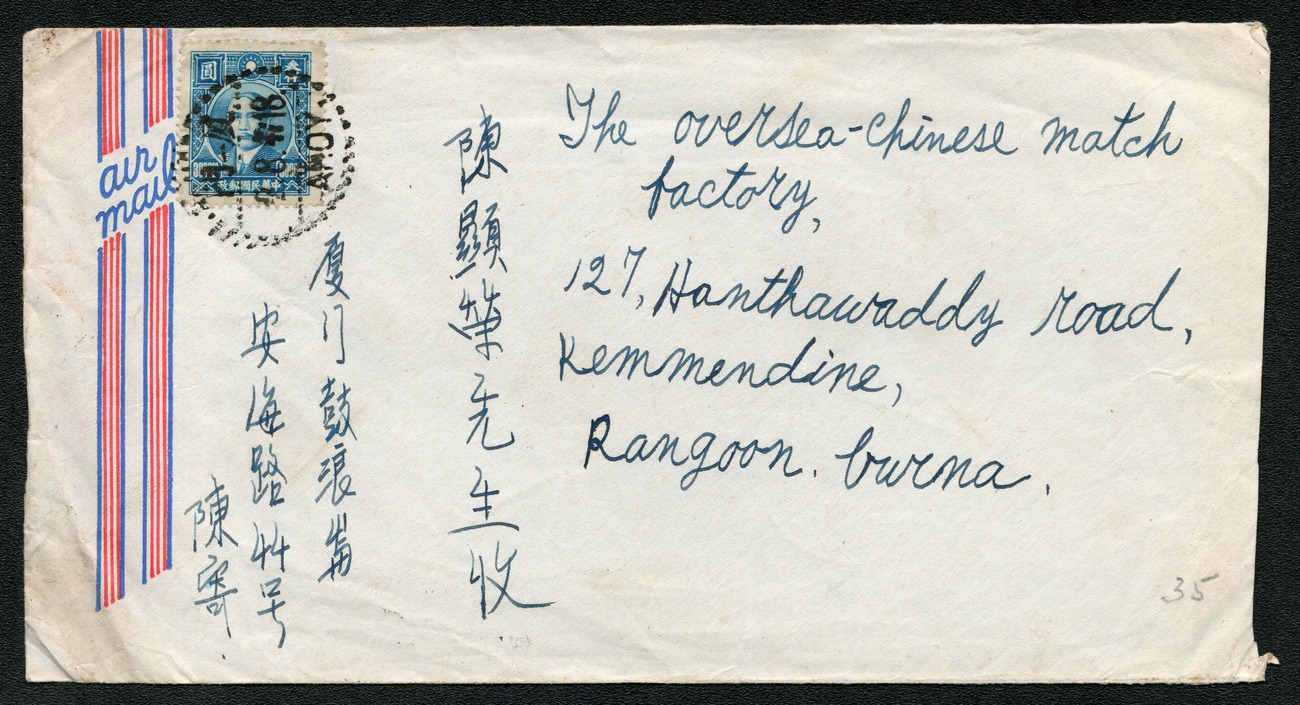 air
mail
圓 壹
政郵國民華中
AMOY
The oversea-chinese match
factory,
127, Hanthawaddy road,
Kemmendine,
Rangoon. burma.
陳顯榮先生收
厦门鼓浪嶼
安海路44号
陳寄
35